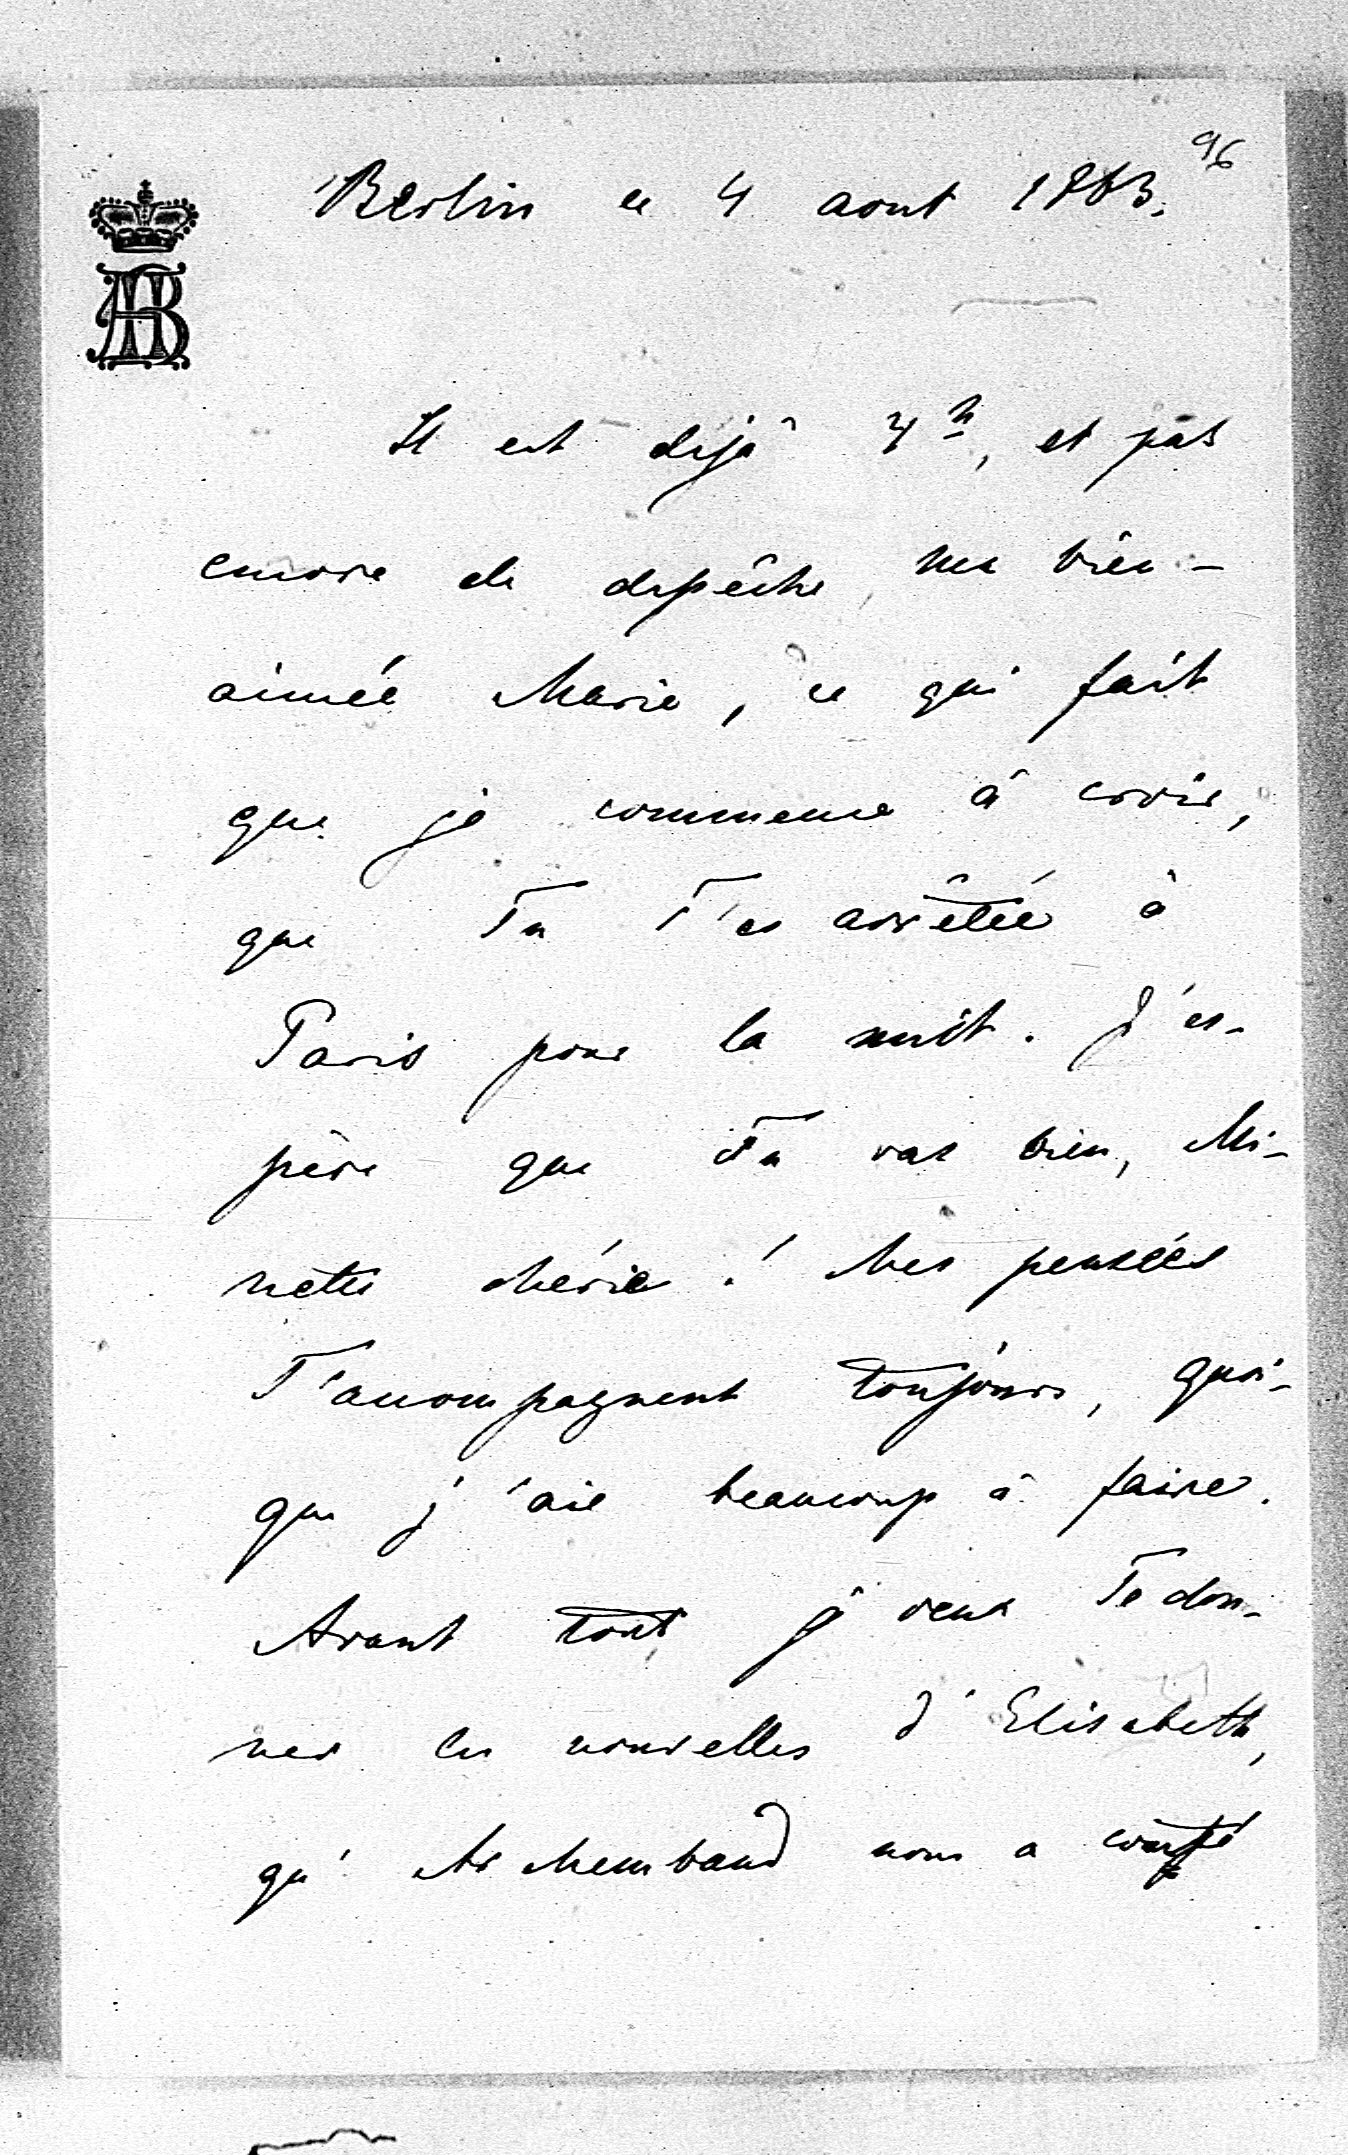 96
Berlin ce 4 aout 1863.
AB
Il est dejà 4h, et pas
encore de depêche, ma bien-
aimée Marie, ce qui fait
que je commence à croire,
que Tu T'es arrêtée à
Paris pour la nuit. J'es-
père que Tu vas bien, Mi-
nette chérie! Mes pensées
T'accompagnent toujours, quoi-
que j'aie beaucoup à faire.
Avant tout je veux Te don-
ner les nouvelles d'Elisabeth,
qu' nous a